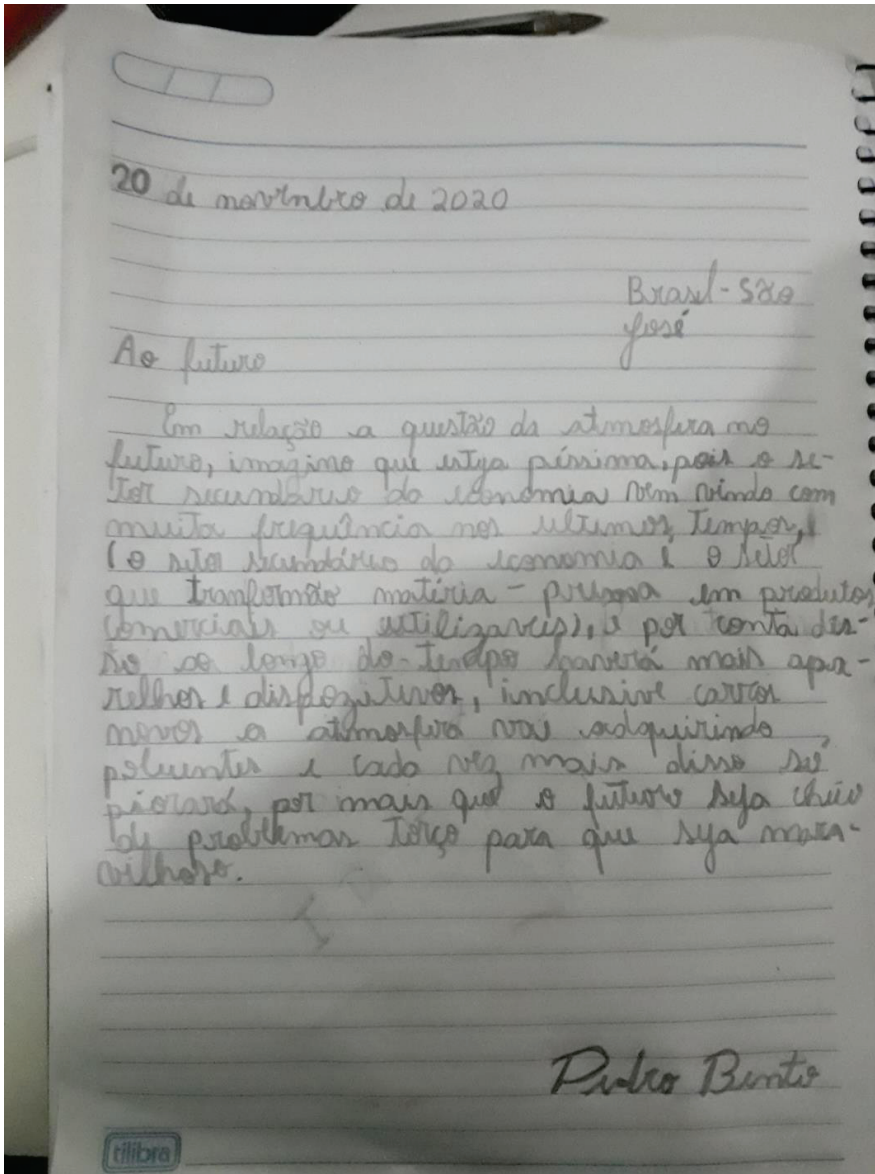 20 de novembro de 2020
Brasil - São
José
Ao futuro
Em relação a questão da atmosfera no
futuro, imagino que esteja péssima, pois o se-
tor secundário da economia vem vindo com
muita frequência nos ultimos tempos,
(o setor secundário da economia é o setor
que tranformão matéria - prima em produtos
comerciais ou utilizaveis), e por conta dis-
so ao longo do tempo haverá mais apa-
relhos e dispozitivos, inclusive carros
novos a atmosfera vai adquirindo
poluentes e cada vez mais disso só
piorará, por mais que o futuro seja cheio
de problemas torço para que seja mara-
vilhoso.
Pedro Bento
tilibra